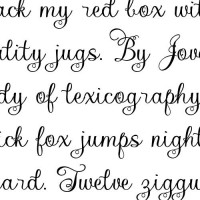 ack my red box wit
ality jugs. By Jov
dy of lexicography
ick fox jumps night
ard. Twelve ziggu